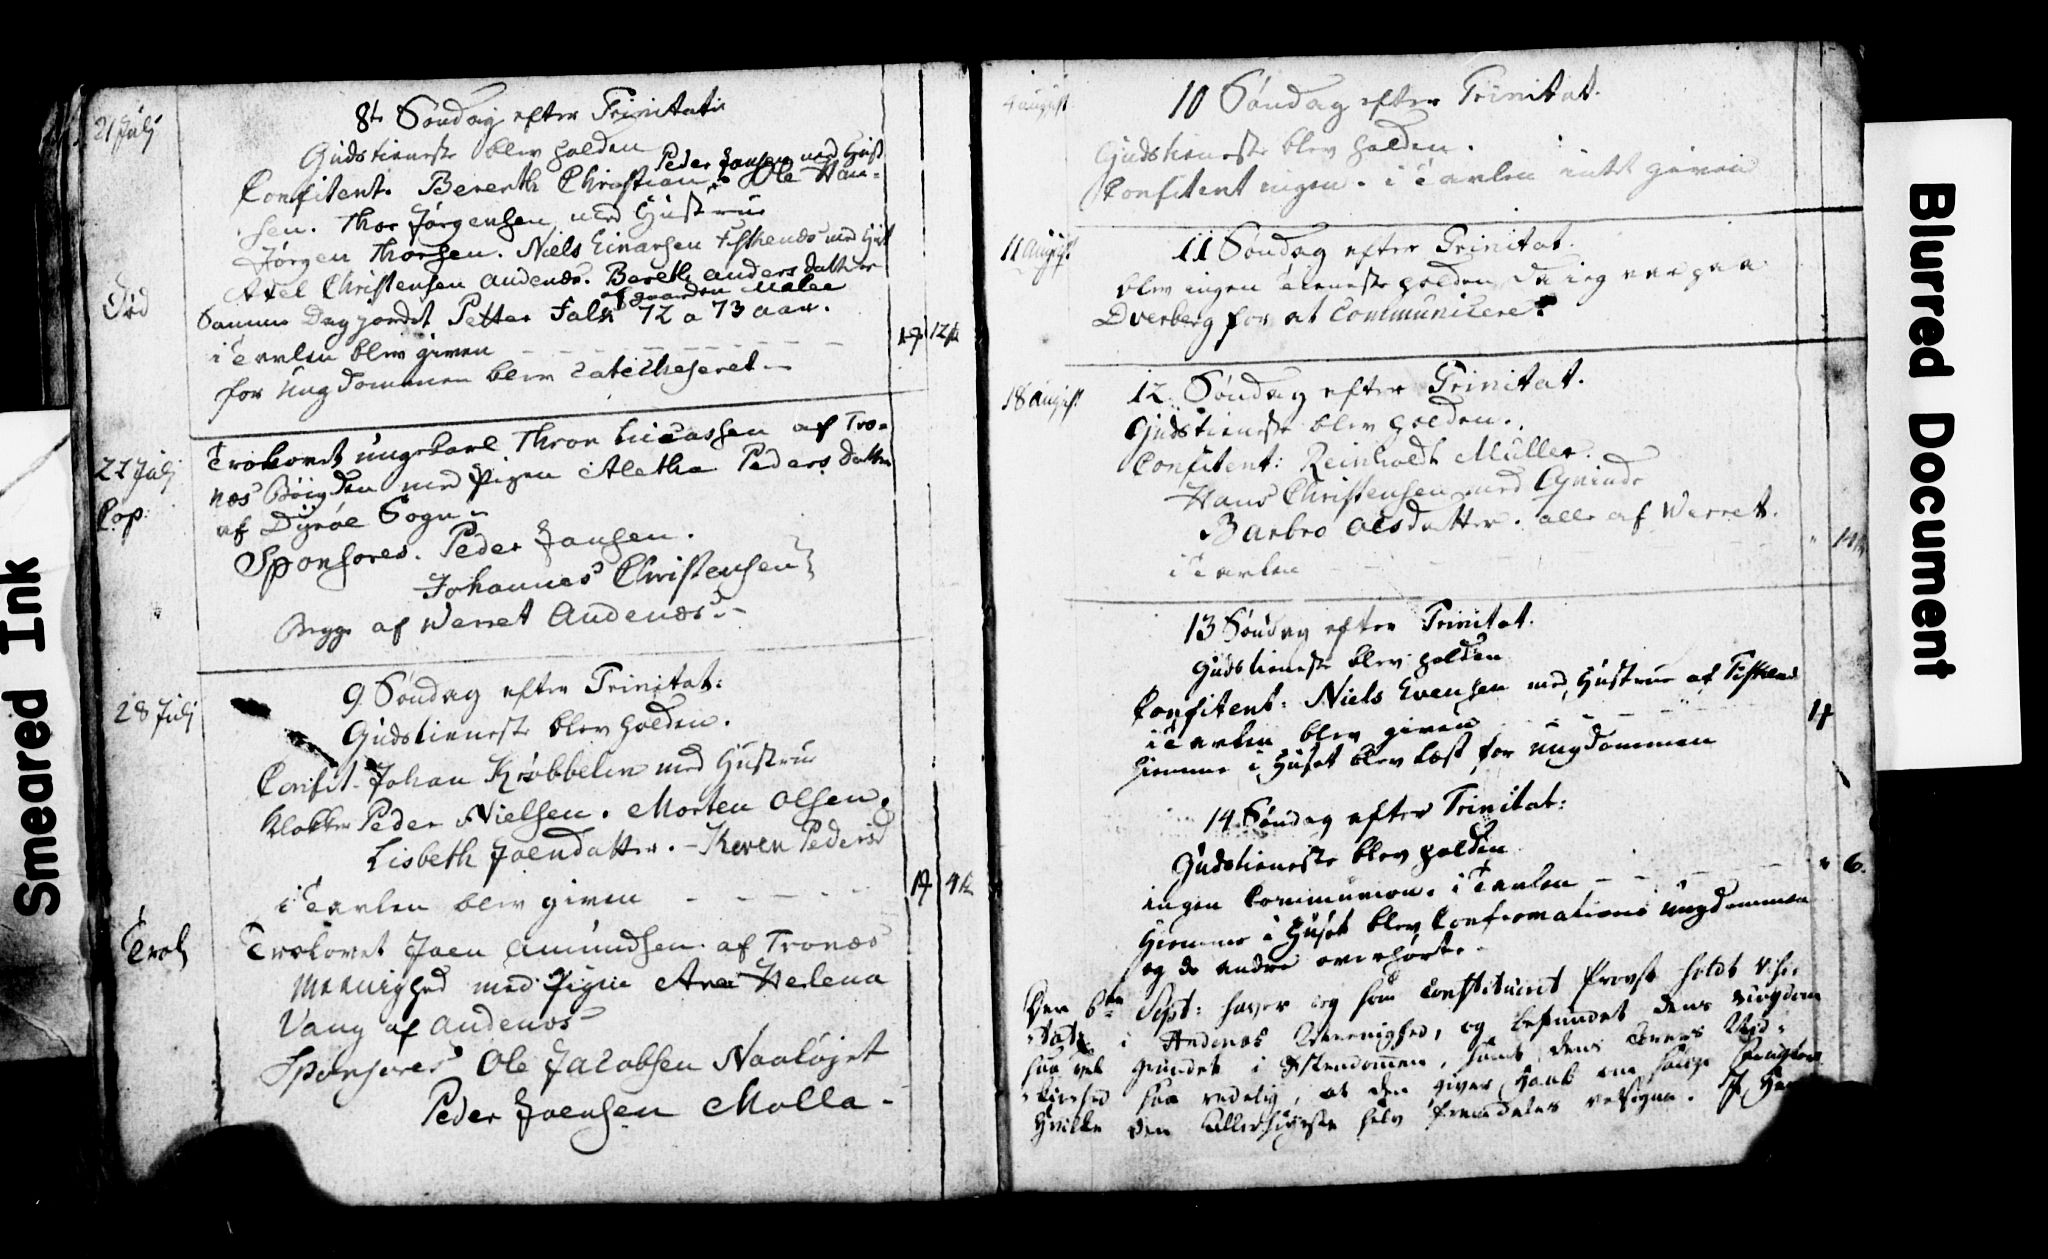 21 Julj
8de Søndag efter Trinitatis
Gudstieneste blev holden
Peder Jansen med Hust
Confitent. Bererth Christian Ole Han-
sen. Thor Jørgensen med Hustrue
Jørgen Thorsen. Niels Einarsen Fiskenes med Hust
Axel Christensen Andenæs. Bereth Anders datter
Død
af gaarden Malee
Samme Dag jordet Petter Falk 72 a 73 aar.
i Tavlen blev given 12 s
for Ungdommen blev Catecheseret
22 Julj
Trolovet ungekarl Thron Lucassen af Tro-
næs Bøigden med Pigen Aletha Peders datter
Cop:
af Dyrøe Sogn
Sponsores. Peder Jansen.
Johannes Christensen
Begge af Werret Andenæs
28 Julj
9 Søndag efter Trinitat:
Gudstieneste blev holden.
Confit. Johan Krøbbelin med Hustrue
Klokker Peder Nielsen. Morten Olsen.
Lisbeth Joendatter. Karen Pedersd
i Tavlen blev given 4 s
Trol
Trolovet Joen Amundsen af Tronæs
Menighed med Pigen Ane Helena
Vang af Andenæs
Sponsores Ole Jacobsen Naaløjet
Peder Joensen Molla
4 august
10 Søndag efter Trinitat.
Gudstieneste blev holden.
Confitent ingen. i Tavlen intet given
11 August
11 Søndag efter Trinitat.
blev ingen Tieneste holden, da ieg var paa
Dverberg for at Communicere
18 August
12 Søndag efter Trinitat.
Gudstieneste blev holden.
Confitent: Reinholdt Müller.
Hans Christensen med Qvinde
Barbro Olsdatter. alle af Werret.
i Tavlen
13 Søndag efter Trinitat.
Gudstieneste blev holden
Confitent: Niels Evensen med Hustrue af Fiskenes
i Tavlen blev given
hiemme i Huset blev læst for ungdommen
14 Søndag efter Trinitat:
Gudstieneste blev holden
ingen Communion. i Tavlen 6.
Hiemme i Huset blev Confirmations ungdommen
og de andre overhørte
Den 6te Sept: haver ieg som Constitueret Provst holdt Visi-
tatz i Andenæs Menighed, og befundet dens Ungdom
saa vel grundet i Christendommen, samt dens Lærers
saa redelig, at den giver Haab om
Hvilke den Allerhøieste selv fremdeles velsigne.
Smeared Ink
Blurred Document